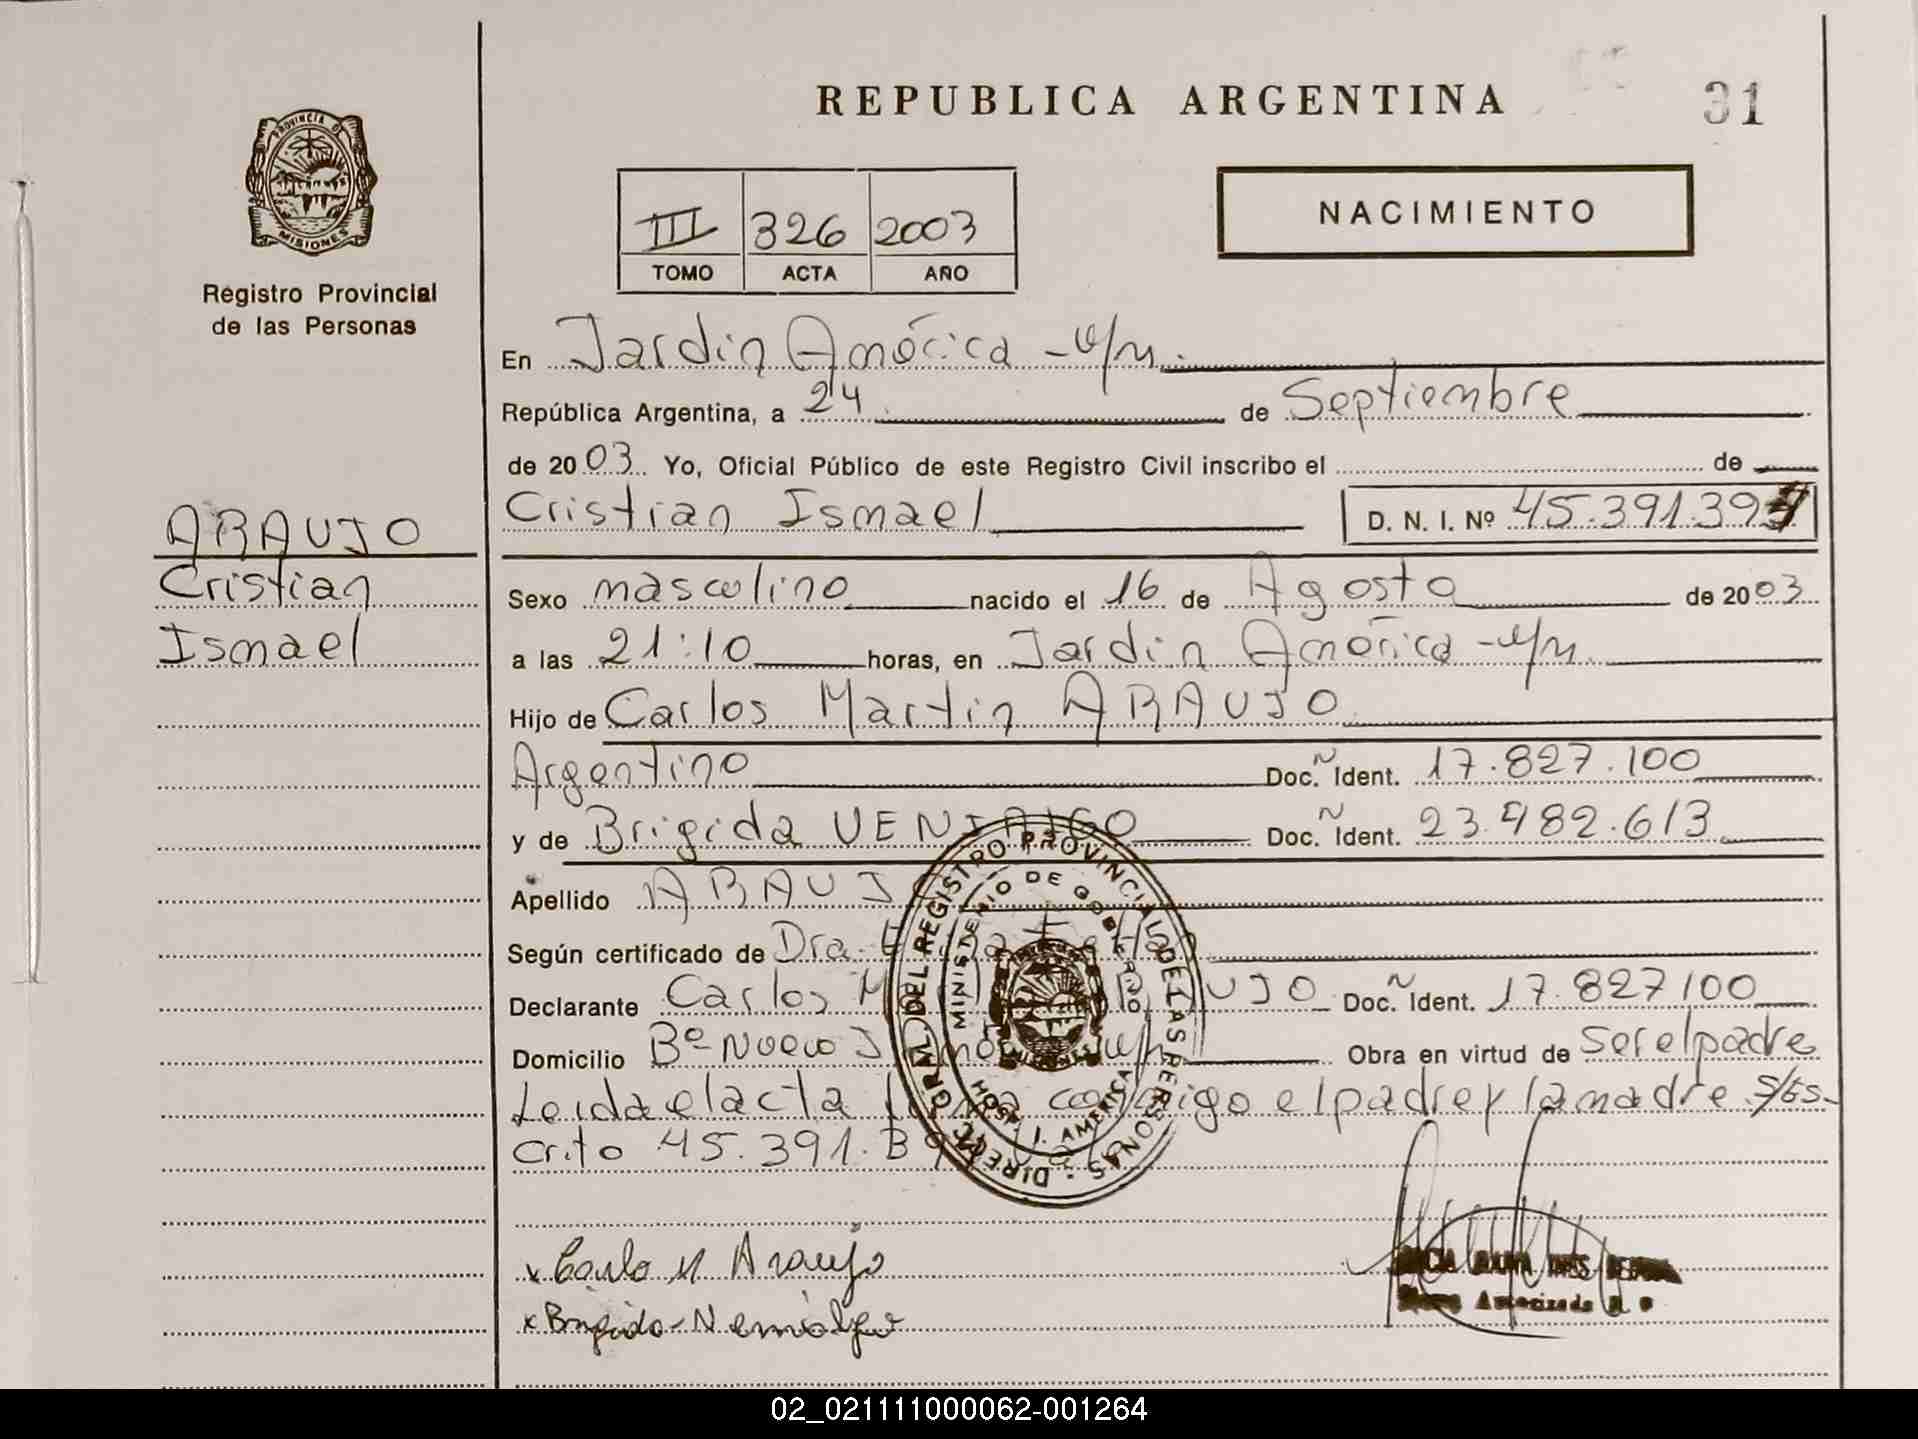 REPUBLICA ARGENTINA
31
PROVINCIA DE
MISIONES
Registro Provincial
de las Personas
NACIMIENTO
III 326 2003
TOMO ACTA AÑO
En Jardin América -
República Argentina, a 24 de Septiembre
de 2003 Yo, Oficial Público de este Registro Civil inscribo el de
Cristian Ismael D. N. I. Nº 45.391.39
ARAUJO
Cristian
Ismael
Sexo masculino nacido el 16 de Agosto de 2003
a las 21:10 horas, en Jardin América -
Hijo de Carlos Martin ARAUJO
Argentino Doc. Ident. 17.827.100
y de Brigida Doc. Ident. 23.482.613
Apellido ARAUJO
Según certificado de Dra.
Declarante Carlos ARAUJO Doc. Ident. 17.827100
Domicilio Bº Nuevo J. Obra en virtud de ser el padre
Leida el acta firma conmigo el padre y la madre S/Es-
crito 45.391.B9
DIREC. GRAL. DEL REGISTRO PROVINCIAL DE LAS PERSONAS
MINISTERIO DE GOBIERNO
HOSP. J. AMERICA
x Carlo M Araujo
x Brigida
Autorizada
02_021111000062-001264